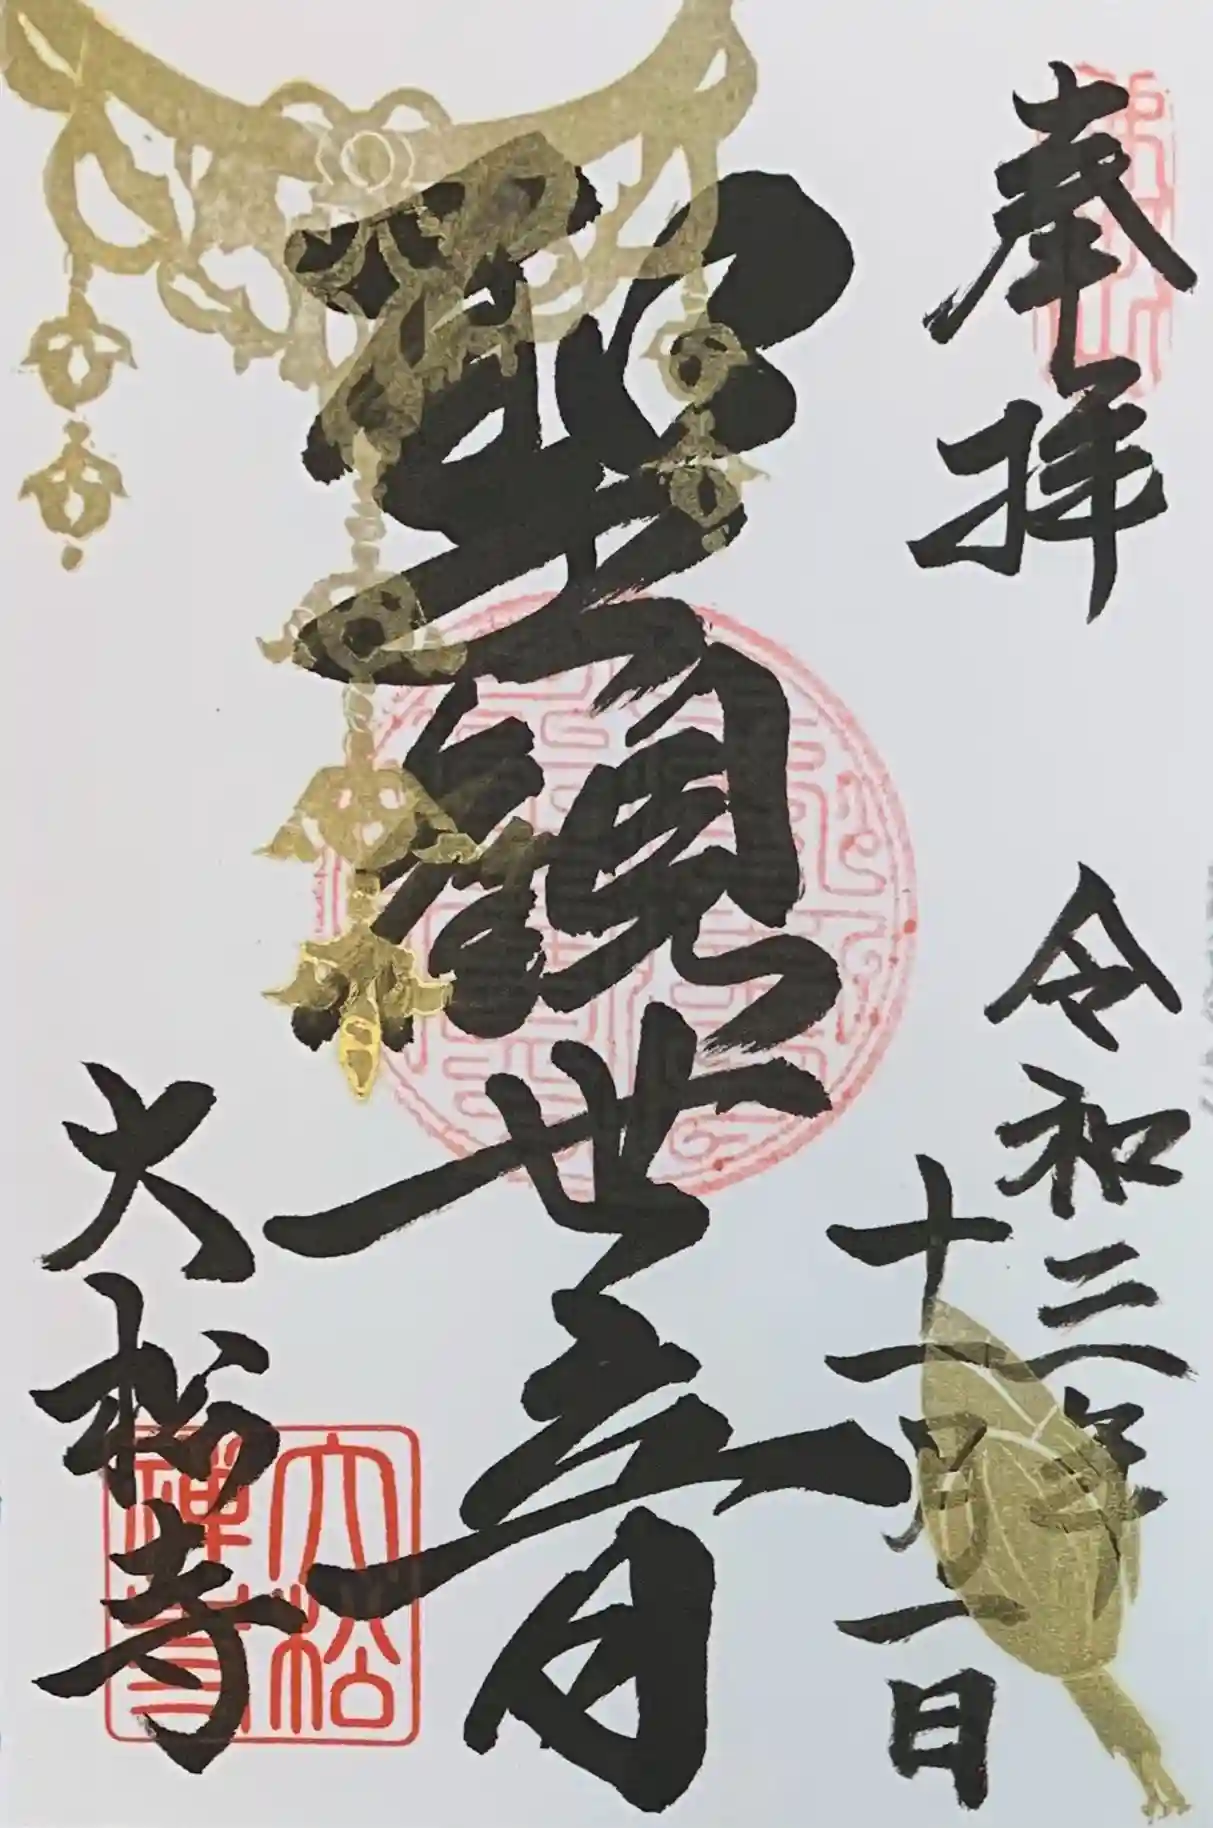 奉拝
令和三年
十一月一日
聖観世音
大松寺
大松
禅寺